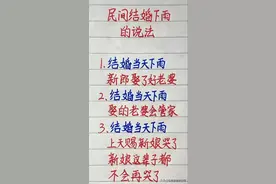 民间结婚下雨
的说法
1.结婚当天下雨
新郎娶了好老婆
2.结婚当天下雨
娶的老婆会管家
3.结婚当天下雨
上天赐新娘哭了
新娘这辈子都
不会再哭了